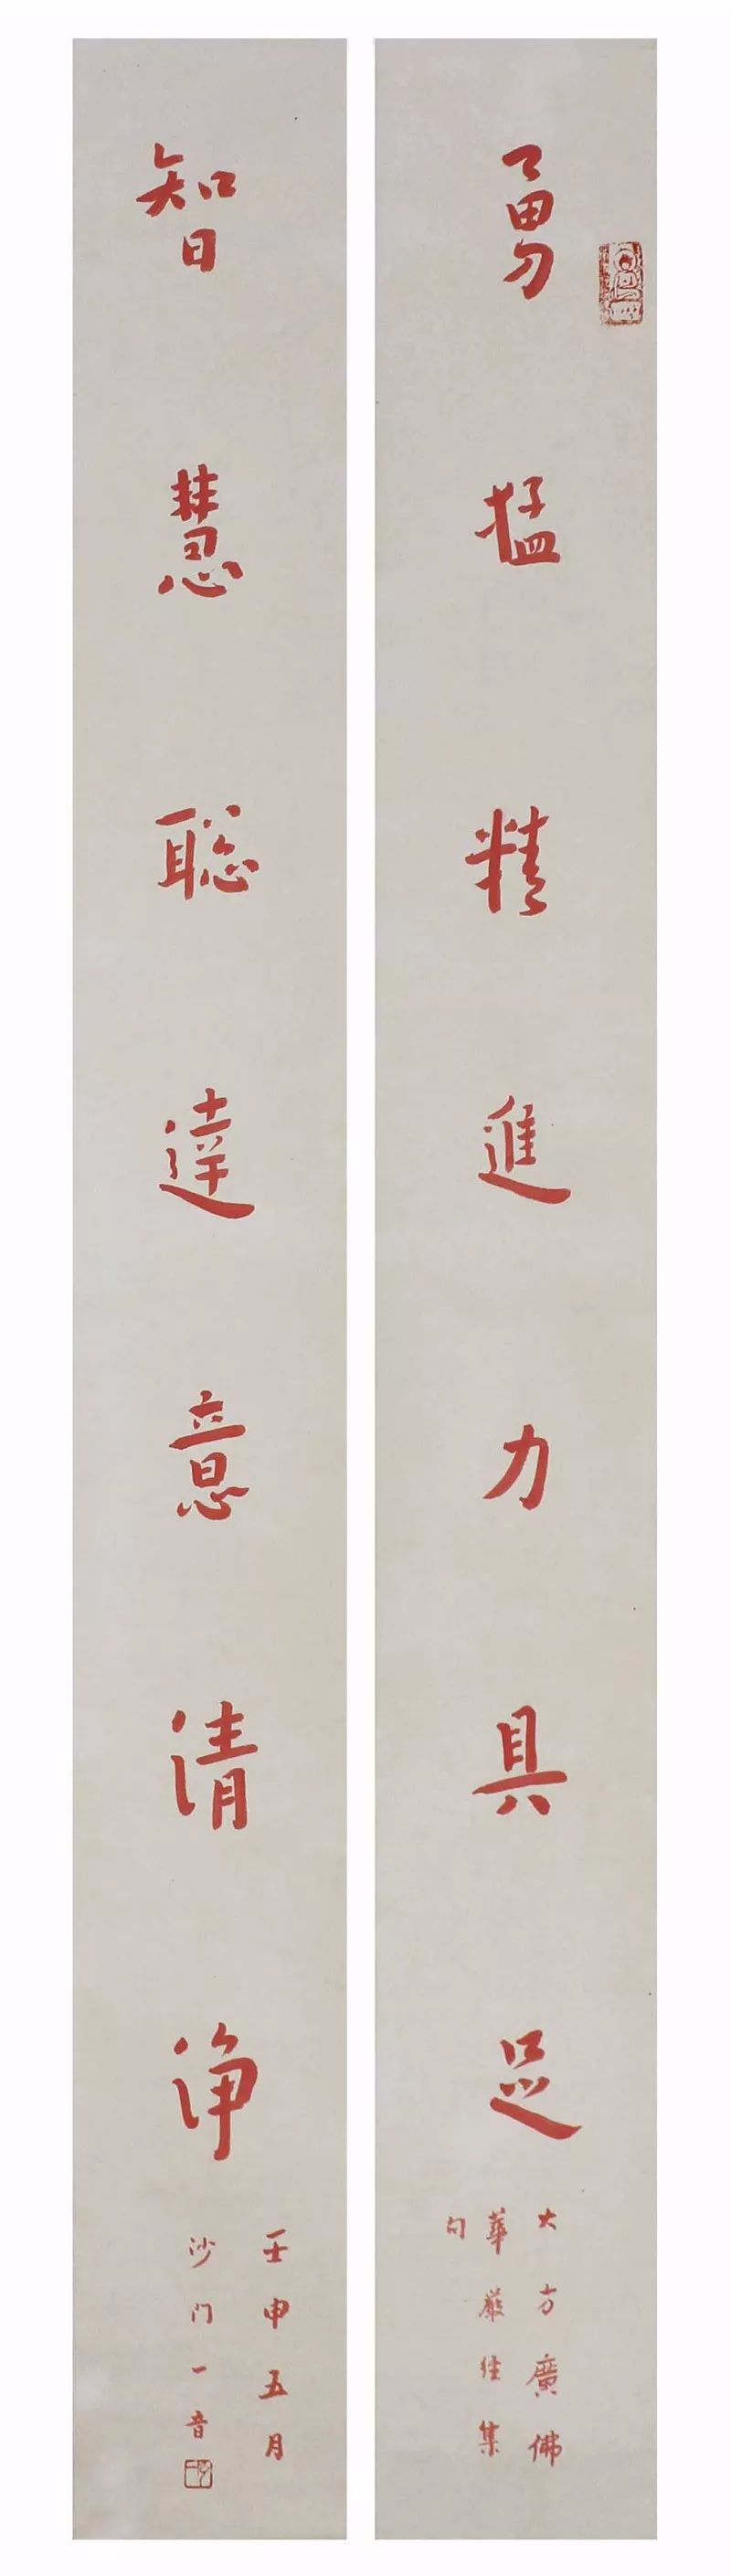 勇猛精進力具足
大方廣佛
華嚴经集
句
智慧聪達意清净
壬申五月
沙门一音